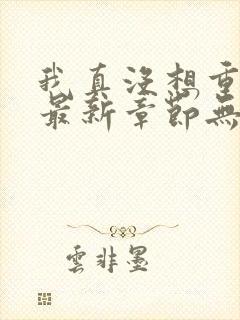 我真沒想重
最新章節無
雲非墨